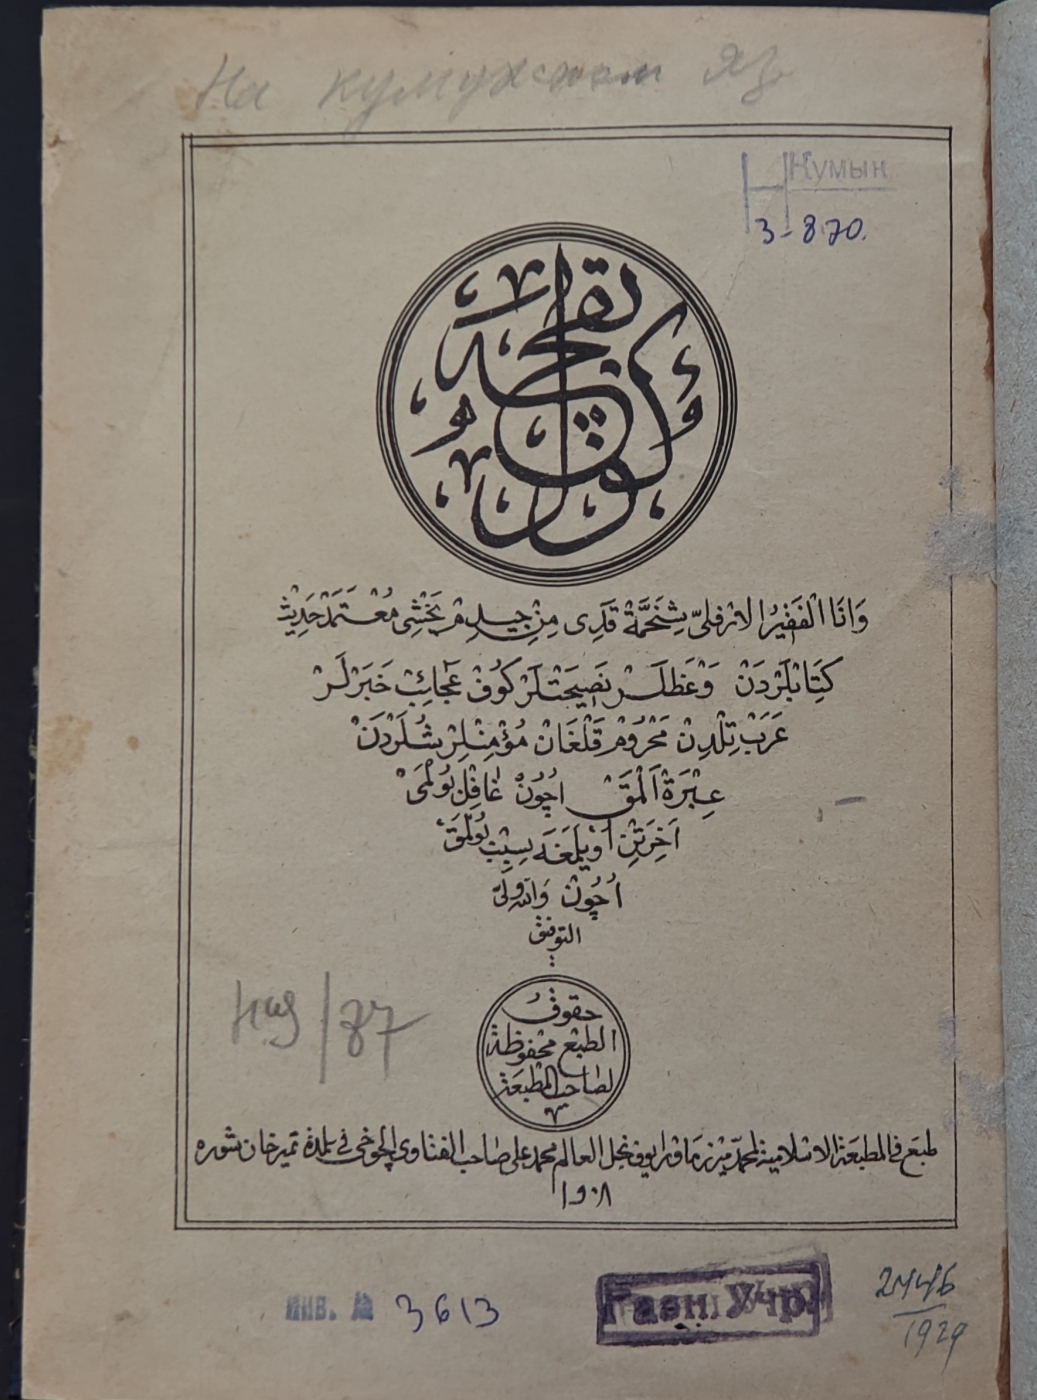 На кумукском яз
Кумык
3-870.
وَانَا الْفَقِيرُ
كِتَابْلَرْدَنْ وَعَظلَرْ نَصِيحَتْلَرْ كوُفْ عَجَائِبْ خَبَرْلَرْ
عَرَبْ تِلْدِنْ مَحْرُومْ قَلْغَانْ مُؤْمِنْلِرْ شُلَرْدَنْ
عِبْرَةْ اَلْمَقْ اُچُونْ غَافِلْ بُولْمَىْ
اَخِرَتِنْ اوُيلَمَغَه سِبَبْ بُولْمَقْ
اُچُونْ وَاللّٰه وَلِىُّ
التوفيق
حقوق
الطبع محفوظة
لصاحب المطبعة
طبع فى المطبعة الاسلامية لمحمد ميرزا ماورايوف نجل العالم محمد على صاحب الفتاوى الچوخى فى بلدة تميرخان شوره
١٩٠٨
инв. № 3613
Газн. Учр.
2446
1929